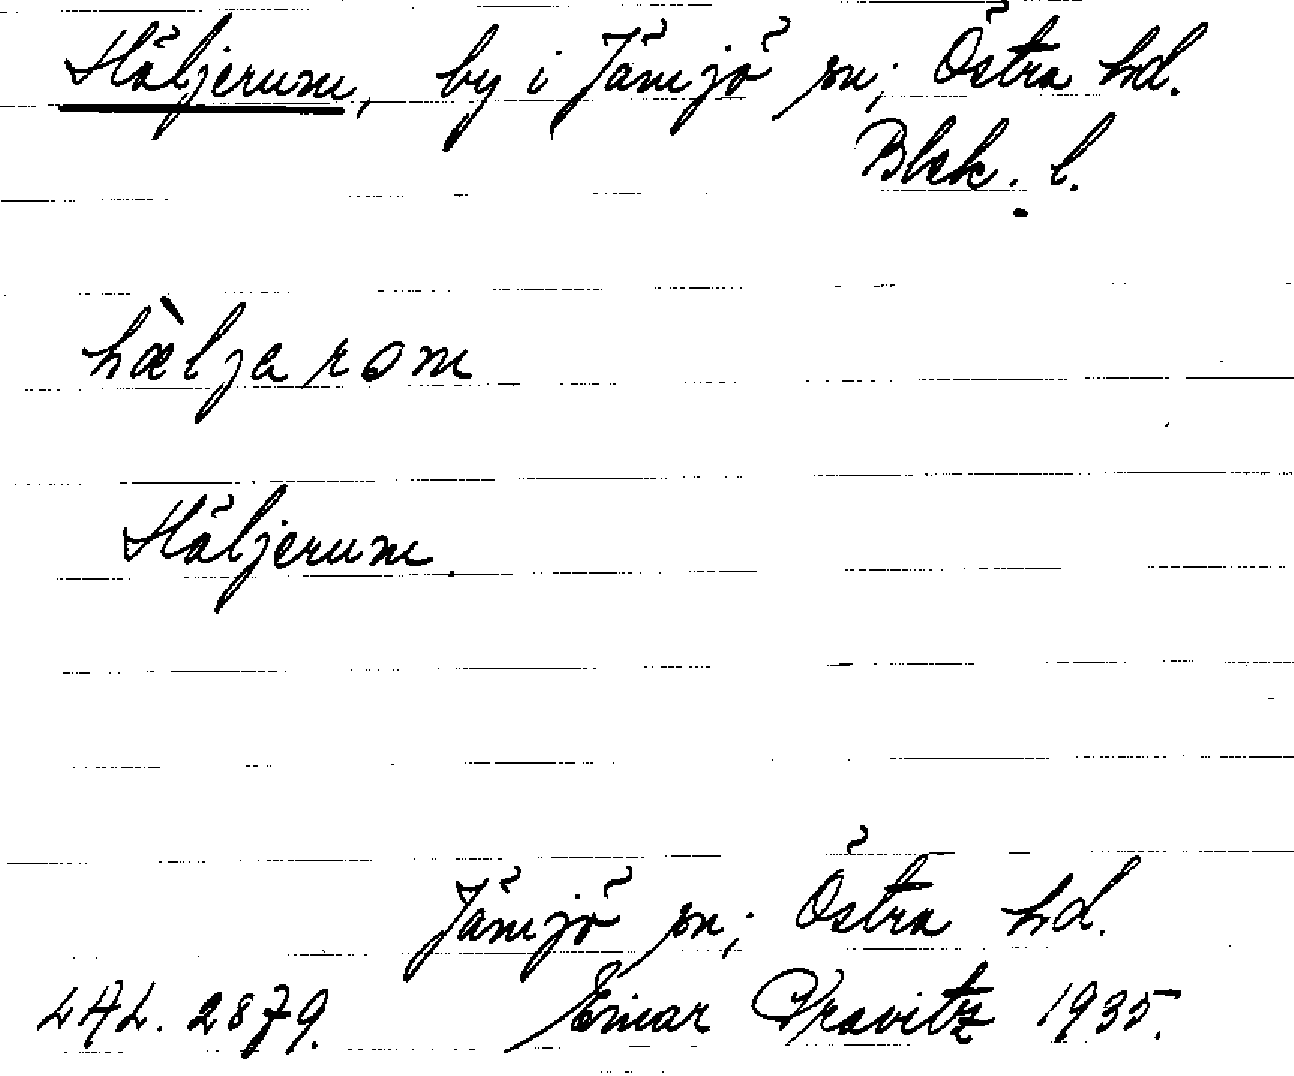 Häljerum, by i Jämjö sn; Östra hd.
Blek. l.
hæ̀ljarom
Häljerum.
Jämjö sn; Östra hd.
LAL. 2879. Einar Kravitz 1935.